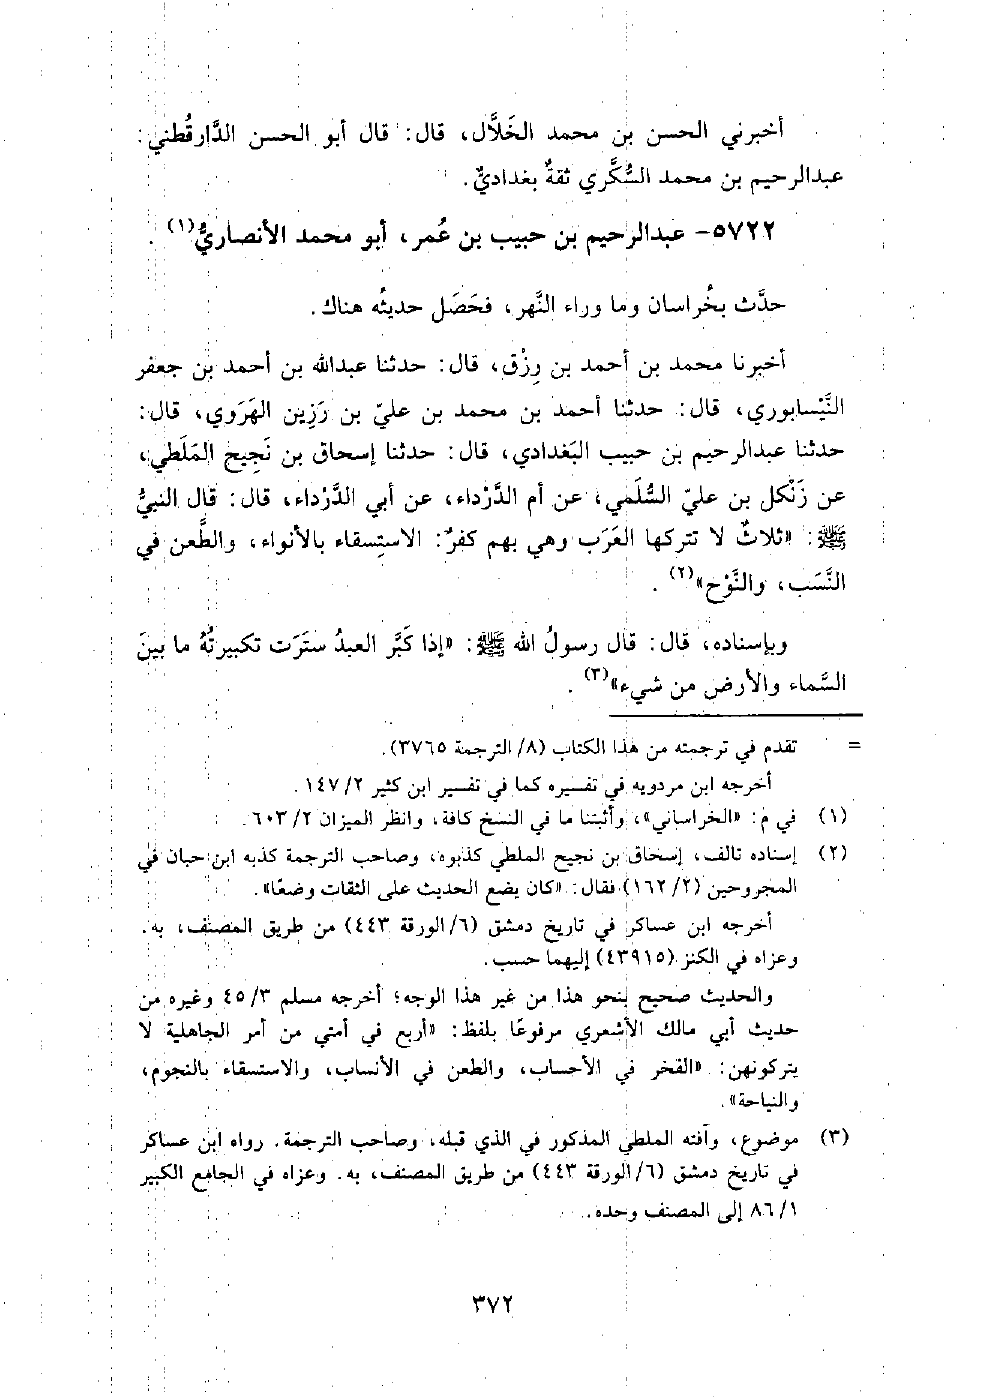 أخبرني الحسن بن محمد الخَلَّال، قال: قال أبو الحسن الدَّارقُطني:
عبدالرحيم بن محمد السُّكَّري ثقةٌ بغداديٌّ.
٥٧٢٢- عبدالرحيم بن حبيب بن عُمر، أبو محمد الأنصاريُّ(١).
حدَّث بخُراسان وما وراء النَّهر، فحَصَل حديثُه هناك.
أخبرنا محمد بن أحمد بن رِزْق، قال: حدثنا عبدالله بن أحمد بن جعفر
النَّيْسابوري، قال: حدثنا أحمد بن محمد بن عليّ بن رَزِين الهَرَوي، قال:
حدثنا عبدالرحيم بن حبيب البَغدادي، قال: حدثنا إسحاق بن نَجِيح المَلَطي،
عن زَنْكل بن عليّ السُّلَمي، عن أم الدَّرْداء، عن أبي الدَّرْداء، قال: قال النبيُّ
ﷺ: «ثلاثٌ لا تتركها العَرَب وهي بهم كفرٌ: الاستِسقاء بالأنواء، والطَّعن في
النَّسَب، والنَّوْح»(٢).
وبإسناده، قال: قال رسولُ الله ﷺ: «إذا كَبَّر العبدُ ستَرَت تكبيرتُهُ ما بينَ
السَّماء والأرض من شيء»(٣).
= تقدم في ترجمته من هذا الكتاب (٨/ الترجمة ٣٧٦٥).
أخرجه ابن مردويه في تفسيره كما في تفسير ابن كثير ٢/ ١٤٧.
(١) في م: «الخراساني»، وأثبتنا ما في النسخ كافة، وانظر الميزان ٢/ ٦٠٣.
(٢) إسناده تالف، إسحاق بن نجيح الملطي كذبوه، وصاحب الترجمة كذبه ابن حبان في
المجروحين (٢/ ١٦٢) فقال: «كان يضع الحديث على الثقات وضعًا».
أخرجه ابن عساكر في تاريخ دمشق (٦/ الورقة ٤٤٣) من طريق المصنف، به.
وعزاه في الكنز (٤٣٩١٥) إليهما حسب.
والحديث صحيح بنحو هذا من غير هذا الوجه؛ أخرجه مسلم ٣/ ٤٥ وغيره من
حديث أبي مالك الأشعري مرفوعًا بلفظ: «أربع في أمتي من أمر الجاهلية لا
يتركونهن: «الفخر في الأحساب، والطعن في الأنساب، والاستسقاء بالنجوم،
والنياحة».
(٣) موضوع، وآفته الملطي المذكور في الذي قبله، وصاحب الترجمة. رواه ابن عساكر
في تاريخ دمشق (٦/ الورقة ٤٤٣) من طريق المصنف، به. وعزاه في الجامع الكبير
١/ ٨٦ إلى المصنف وحده.
٣٧٢